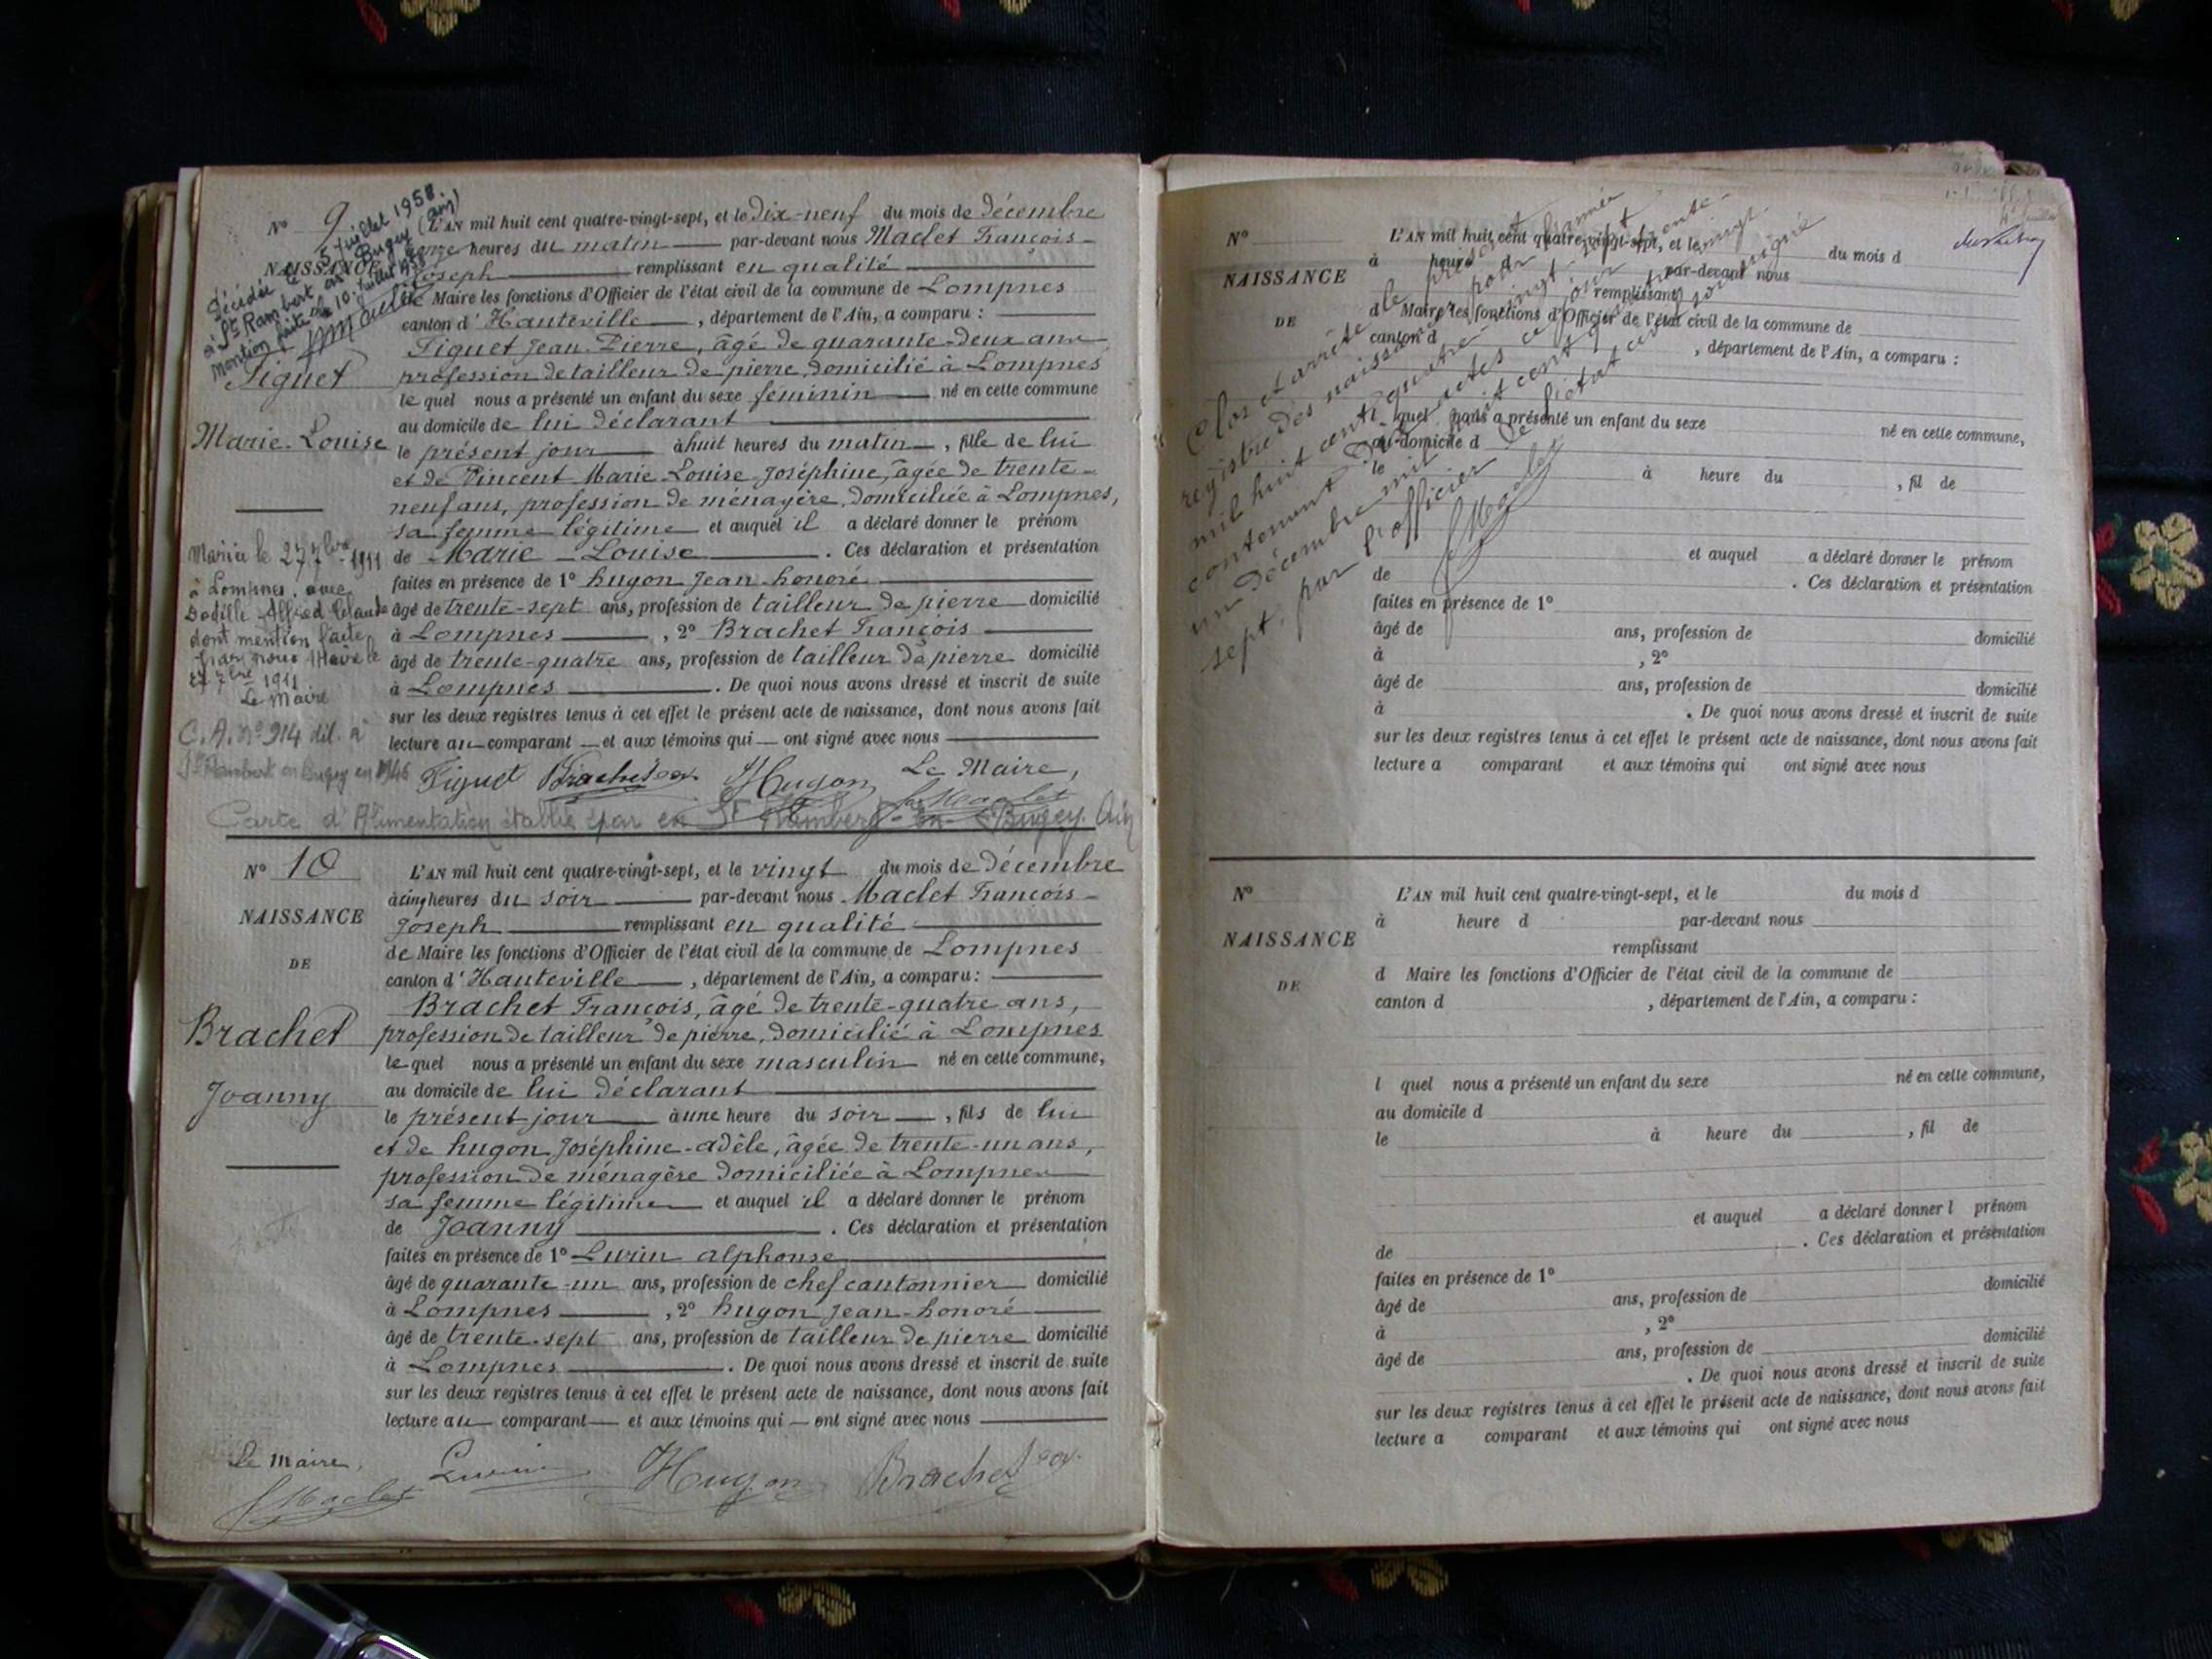 Décédée le 5 juillet 1958
à St Rambert en Bugey (Ain)
Mention faite le 10 juillet 1958
N° 9
NAISSANCE
Figuet
Marie-Louise
Mariée le 27 7bre 1911
à Lompnes, avec
Dodille Alfred Claude
dont mention faite
par nous Maire le
27 7bre 1911
Le Maire
C.A. N° 914 dél. à
St Rambert en Bugey en 1946
L'AN mil huit cent quatre-vingt-sept, et le Dix-neuf du mois de Décembre
à onze heures du matin par-devant nous Maclet François-
Joseph remplissant en qualité
de Maire les fonctions d'Officier de l'état civil de la commune de Lompnes
canton d'Hauteville, département de l'Ain, a comparu :
Figuet Jean-Pierre, âgé de quarante-deux ans
profession de tailleur de pierre, domicilié à Lompnes
le quel nous a présenté un enfant du sexe féminin né en cette commune
au domicile de lui déclarant
le présent jour à huit heures du matin, fille de lui
et de Vincent Marie-Louise-Joséphine, âgée de trente-
neuf ans, profession de ménagère, domiciliée à Lompnes,
sa femme légitime et auquel il a déclaré donner le prénom
de Marie-Louise. Ces déclaration et présentation
faites en présence de 1° hugon Jean-honoré
âgé de trente-sept ans, profession de tailleur de pierre domicilié
à Lompnes, 2° Brachet François
âgé de trente-quatre ans, profession de tailleur de pierre domicilié
à Lompnes. De quoi nous avons dressé et inscrit de suite
sur les deux registres tenus à cet effet le présent acte de naissance, dont nous avons fait
lecture au comparant et aux témoins qui ont signé avec nous
Figuet Brachet Hugon Le Maire,
Maclet
Carte d'Alimentation établie par St Rambert-en-Bugey Ain
N° 10
NAISSANCE
DE
Brachet
Joanny
L'AN mil huit cent quatre-vingt-sept, et le vingt du mois de Décembre
à cinq heures du soir par-devant nous Maclet François-
Joseph remplissant en qualité
de Maire les fonctions d'Officier de l'état civil de la commune de Lompnes
canton d'Hauteville, département de l'Ain, a comparu :
Brachet François, âgé de trente-quatre ans,
profession de tailleur de pierre, domicilié à Lompnes
le quel nous a présenté un enfant du sexe masculin né en cette commune,
au domicile de lui déclarant
le présent jour à une heure du soir, fils de lui
et de hugon Joséphine-adèle, âgée de trente-un ans,
profession de ménagère domiciliée à Lompnes
sa femme légitime et auquel il a déclaré donner le prénom
de Joanny. Ces déclaration et présentation
faites en présence de 1° Lurin alphonse
âgé de quarante-un ans, profession de chef cantonnier domicilié
à Lompnes, 2° hugon Jean-honoré
âgé de trente-sept ans, profession de tailleur de pierre domicilié
à Lompnes. De quoi nous avons dressé et inscrit de suite
sur les deux registres tenus à cet effet le présent acte de naissance, dont nous avons fait
lecture au comparant et aux témoins qui ont signé avec nous
Le maire,
Maclet Lurin Hugon Brachet
Clos et arrêté le présent
registre des naissances pour l'année
mil huit cent quatre-vingt-sept
contenant Dix actes ce jour trente-
un Décembre mil huit cent quatre-vingt-
sept, par l'officier de l'état civil soussigné
Maclet
N°
NAISSANCE
DE
L'AN mil huit cent quatre-vingt-sept, et le du mois d
à heure d par-devant nous
remplissant
d Maire les fonctions d'Officier de l'état civil de la commune de
canton d , département de l'Ain, a comparu :
l quel nous a présenté un enfant du sexe né en cette commune,
au domicile d
le à heure du , fil de
et auquel a déclaré donner le prénom
de . Ces déclaration et présentation
faites en présence de 1°
âgé de ans, profession de domicilié
à , 2°
âgé de ans, profession de domicilié
à . De quoi nous avons dressé et inscrit de suite
sur les deux registres tenus à cet effet le présent acte de naissance, dont nous avons fait
lecture a comparant et aux témoins qui ont signé avec nous
N°
NAISSANCE
DE
L'AN mil huit cent quatre-vingt-sept, et le du mois d
à heure d par-devant nous
remplissant
d Maire les fonctions d'Officier de l'état civil de la commune de
canton d , département de l'Ain, a comparu :
l quel nous a présenté un enfant du sexe né en cette commune,
au domicile d
le à heure du , fil de
et auquel a déclaré donner l prénom
de . Ces déclaration et présentation
faites en présence de 1°
âgé de ans, profession de domicilié
à , 2°
âgé de ans, profession de domicilié
. De quoi nous avons dressé et inscrit de suite
sur les deux registres tenus à cet effet le présent acte de naissance, dont nous avons fait
lecture a comparant et aux témoins qui ont signé avec nous